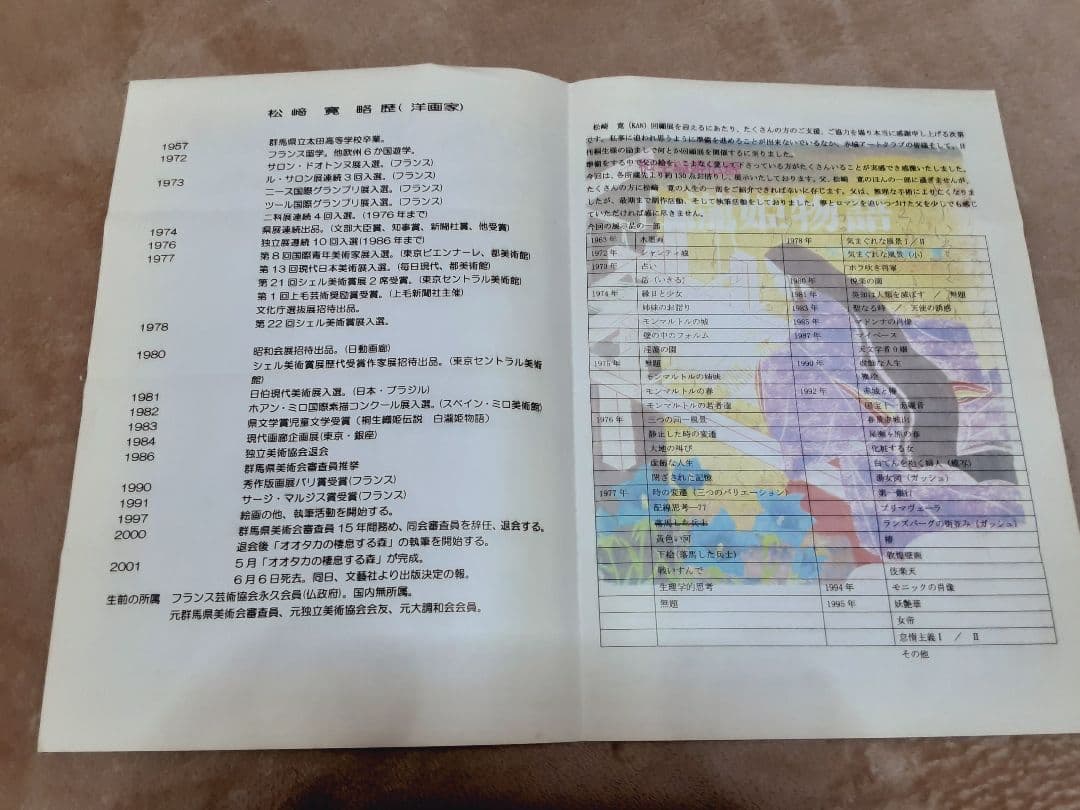 松﨑 寛 略歴(洋画家)
1957 群馬県立太田高等学校卒業。
1972 フランス留学。他欧州6か国遊学。
サロン・ドオトンヌ展入選。(フランス)
1973 ル・サロン展連続3回入選。(フランス)
ニース国際グランプリ展入選。(フランス)
ツール国際グランプリ展入選。(フランス)
二科展連続4回入選。(1976年まで)
1974 県展連続出品。(文部大臣賞、知事賞、新聞社賞、他受賞)
1976 独立展連続10回入選(1986年まで)
1977 第8回国際青年美術家展入選。(東京ビエンナーレ、都美術館)
第13回現代日本美術展入選。(毎日現代、都美術館)
第21回シェル美術賞展2席受賞。(東京セントラル美術館)
第1回上毛芸術奨励賞受賞。(上毛新聞社主催)
文化庁選抜展招待出品。
1978 第22回シェル美術賞展入選。
1980 昭和会展招待出品。(日動画廊)
シェル美術賞展歴代受賞作家展招待出品。(東京セントラル美術
館)
1981 日伯現代美術展入選。(日本・ブラジル)
1982 ホアン・ミロ国際素描コンクール展入選。(スペイン・ミロ美術館)
1983 県文学賞児童文学受賞(桐生織姫伝説 白瀧姫物語)
1984 現代画廊企画展(東京・銀座)
1986 独立美術協会退会
群馬県美術会審査員推挙
1990 秀作版画展パリ賞受賞(フランス)
1991 サージ・マルジス賞受賞(フランス)
1997 絵画の他、執筆活動を開始する。
2000 群馬県美術会審査員15年間務め、同会審査員を辞任、退会する。
退会後「オオタカの棲息する森」の執筆を開始する。
2001 5月「オオタカの棲息する森」が完成。
6月6日死去。同日、文藝社より出版決定の報。
生前の所属 フランス芸術協会永久会員(仏政府)。国内無所属。
元群馬県美術会審査員、元独立美術協会会友、元大調和会会員。
松﨑 寛(KAN)回顧展を迎えるにあたり、たくさんの方のご支援、ご協力を賜り本当に感謝申し上げる次第
です。私事に追われ思うように準備を進めることが出来ないでいるなか、赤城アートクラブの皆様そして、日
稱桐生様の励ましで何とか回顧展を開催するに至りました。
準備をする中で父の絵を、こよなく愛して下さっている方がたくさんいることが実感でき感激いたしました。
今回は、各所蔵先より約130点お借りし、展示いたしております。父、松﨑 寛のほんの一部に過ぎませんが、
たくさんの方に松﨑 寛の人生の一部をご紹介できれば幸いに存じます。父は、無理な手術により亡くなりまし
たが、最期まで創作活動、そして執筆活動をしておりました。夢とロマンを追いつづけた父を少しでも感じ
ていただければ幸に尽きません。
姫物語
今回の展示品の一部
1963年 木炭画 1978年 気まぐれな風景Ⅰ/Ⅱ
1972年 シャンティ城 気まぐれな風景(小)
1973年 占い ホラ吹き将軍
岳(いきる) 1980年 悦楽の園
1974年 縁日と少女 1981年 英知は人類を滅ぼす / 無題
姉妹のお祭り 1983年 聖なる時 / 天使の誘惑
モンマルトルの城 1985年 マドンナの肖像
壁の中のフォルム 1987年 マイペース
淫蕩の園 天文学者の棚
1975年 無題 1990年 虚飾な人生
モンマルトルの姉妹 残淫
モンマルトルの春 1992年 赤城と椿
モンマルトルの若者達 国宝十一面観音
1976年 三つの同一風景 春景赤城山
静止した時の変遷 尾瀬ヶ原の春
大地の叫び 化粧する女
虚飾な人生 白てんを抱く婦人(模写)
閉ざされた記憶 遊女図(ガッシュ)
1977年 時の変遷(三つのバリエーション) 第一銀行
配線思考―77 プリマヴェーラ
落馬した兵士 ランスバーグの街並み(ガッシュ)
黄色い河 椿
下絵(落馬した兵士) 敦煌壁画
戦いすんで 伎楽天
生理学的思考 1994年 モニックの肖像
無題 1995年 妖艶華
女帝
怠惰主義Ⅰ / Ⅱ
その他